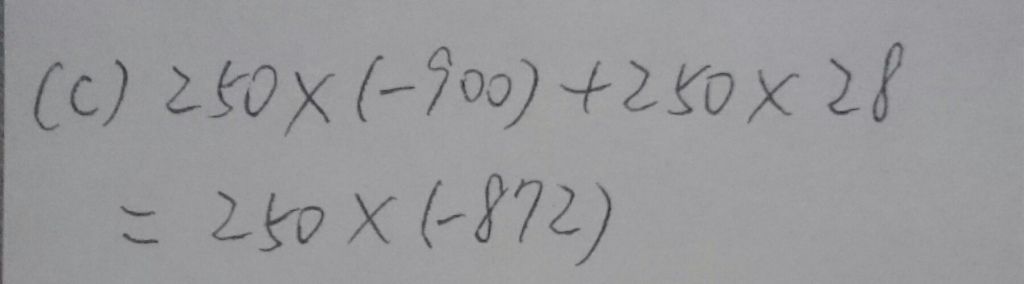 (C) 250×(-900)+250×28
= 250×(-872)